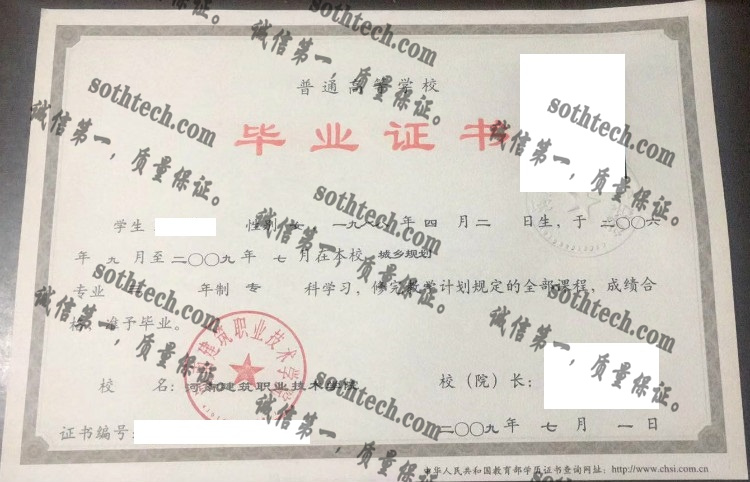 普通高等学校
毕业证书
学生 性别 女 一九八 年 四 月 二 日生,于 二〇〇六
年 九 月至 二〇〇九 年 七 月在本校 城乡规划
专业 年制 专 科学习,修完教学计划规定的全部课程,成绩合
准予毕业。
校 名:河南建筑职业技术学院
校(院)长:
证书编号:
二〇〇九 年 七 月 一 日
中华人民共和国教育部学历证书查询网址:http://www.chsi.com.cn
建筑职业技术学院
sothtech.com
诚信第一,质量保证。
sothtech.com
诚信第一,质量保证。
sothtech.com
诚信第一,质量保证。
sothtech.com
诚信第一,质量保证。
sothtech.com
诚信第一,质量保证。
sothtech.com
诚信第一,质量保证。
sothtech.com
诚信第一,质量保证。
sothtech.com
诚信第一,质量保证。
sothtech.com
诚信第一,质量保证。